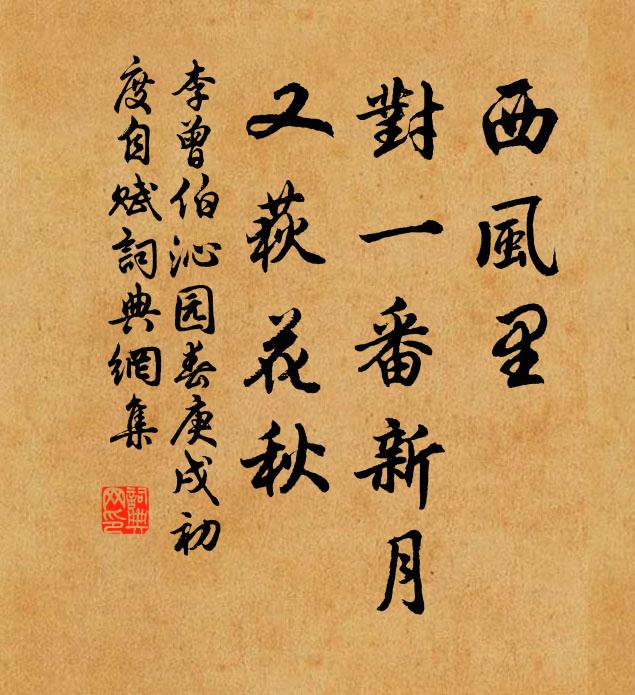 西風里
對一番新月
又荻花秋
李曾伯沁园春庚戌初
度自賦詞典網集
詞典
网印